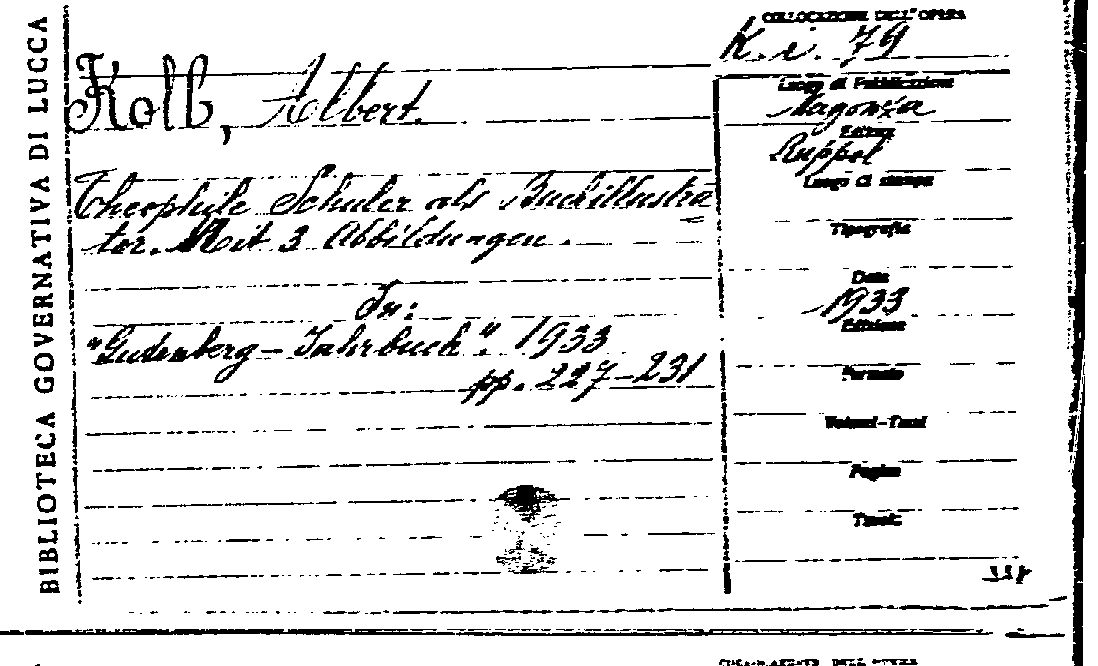 BIBLIOTECA GOVERNATIVA DI LUCCA
COLLOCAZIONE DELL'OPERA
K. i. 79
Kolb, Albert.
Theophile Schuler als Buchillustra
tor. Mit 3 Abbildungen.
In:
"Gutenberg-Jahrbuch". 1933
pp. 227-231
Luogo di Pubblicazione
Magonza
Editore
Ruppel
Luogo di stampa
Tipografia
Data
1933
Edizione
Formato
Volumi-Tomi
Pagine
Tavole